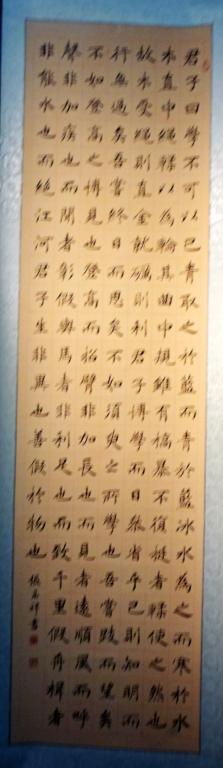 君子曰學不可以已青取之於藍而青於藍冰水為之而寒於水
木直中繩輮以為輪其曲中規雖有槁暴不復挺者輮使之然也
故木受繩則直金就礪則利君子博學而日參省乎己則知明而
行無過矣吾嘗終日而思矣不如須臾之所學也吾嘗跂而望矣
不如登高之博見也登高而招臂非加長也而見者遠順風而呼
聲非加疾也而聞者彰假輿馬者非利足也而致千里假舟楫者
非能水也而絕江河君子生非異也善假於物也